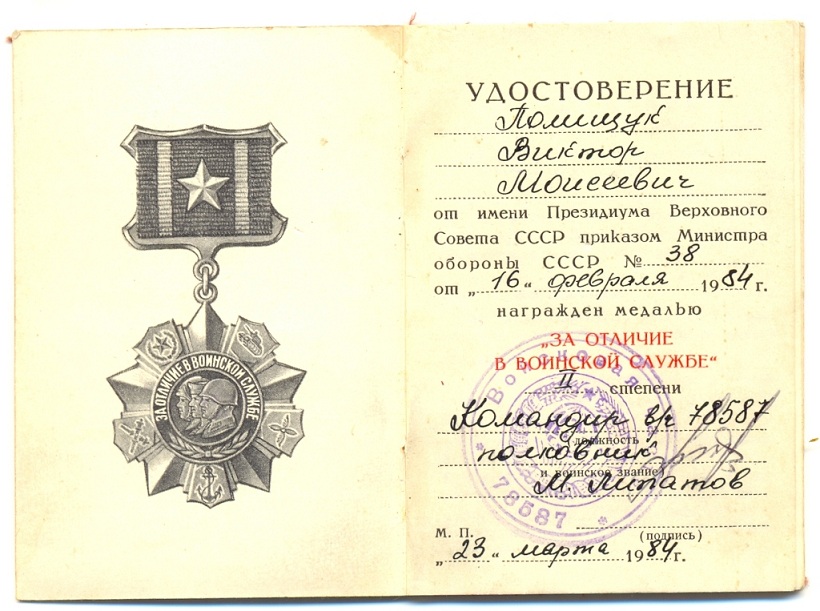 ЗА ОТЛИЧИЕ В ВОИНСКОЙ СЛУЖБЕ
УДОСТОВЕРЕНИЕ
Полищук
Виктор
Моисеевич
от имени Президиума Верховного
Совета СССР приказом Министра
обороны СССР № 38
от „16“ февраля 1984 г.
награжден медалью
„ЗА ОТЛИЧИЕ
В ВОИНСКОЙ СЛУЖБЕ“
II степени
Командир в/ч 78587
(должность
полковник
и воинское звание)
М. Липатов
М. П.
(подпись)
„23“ марта 1984 г.
Войсковая
78587